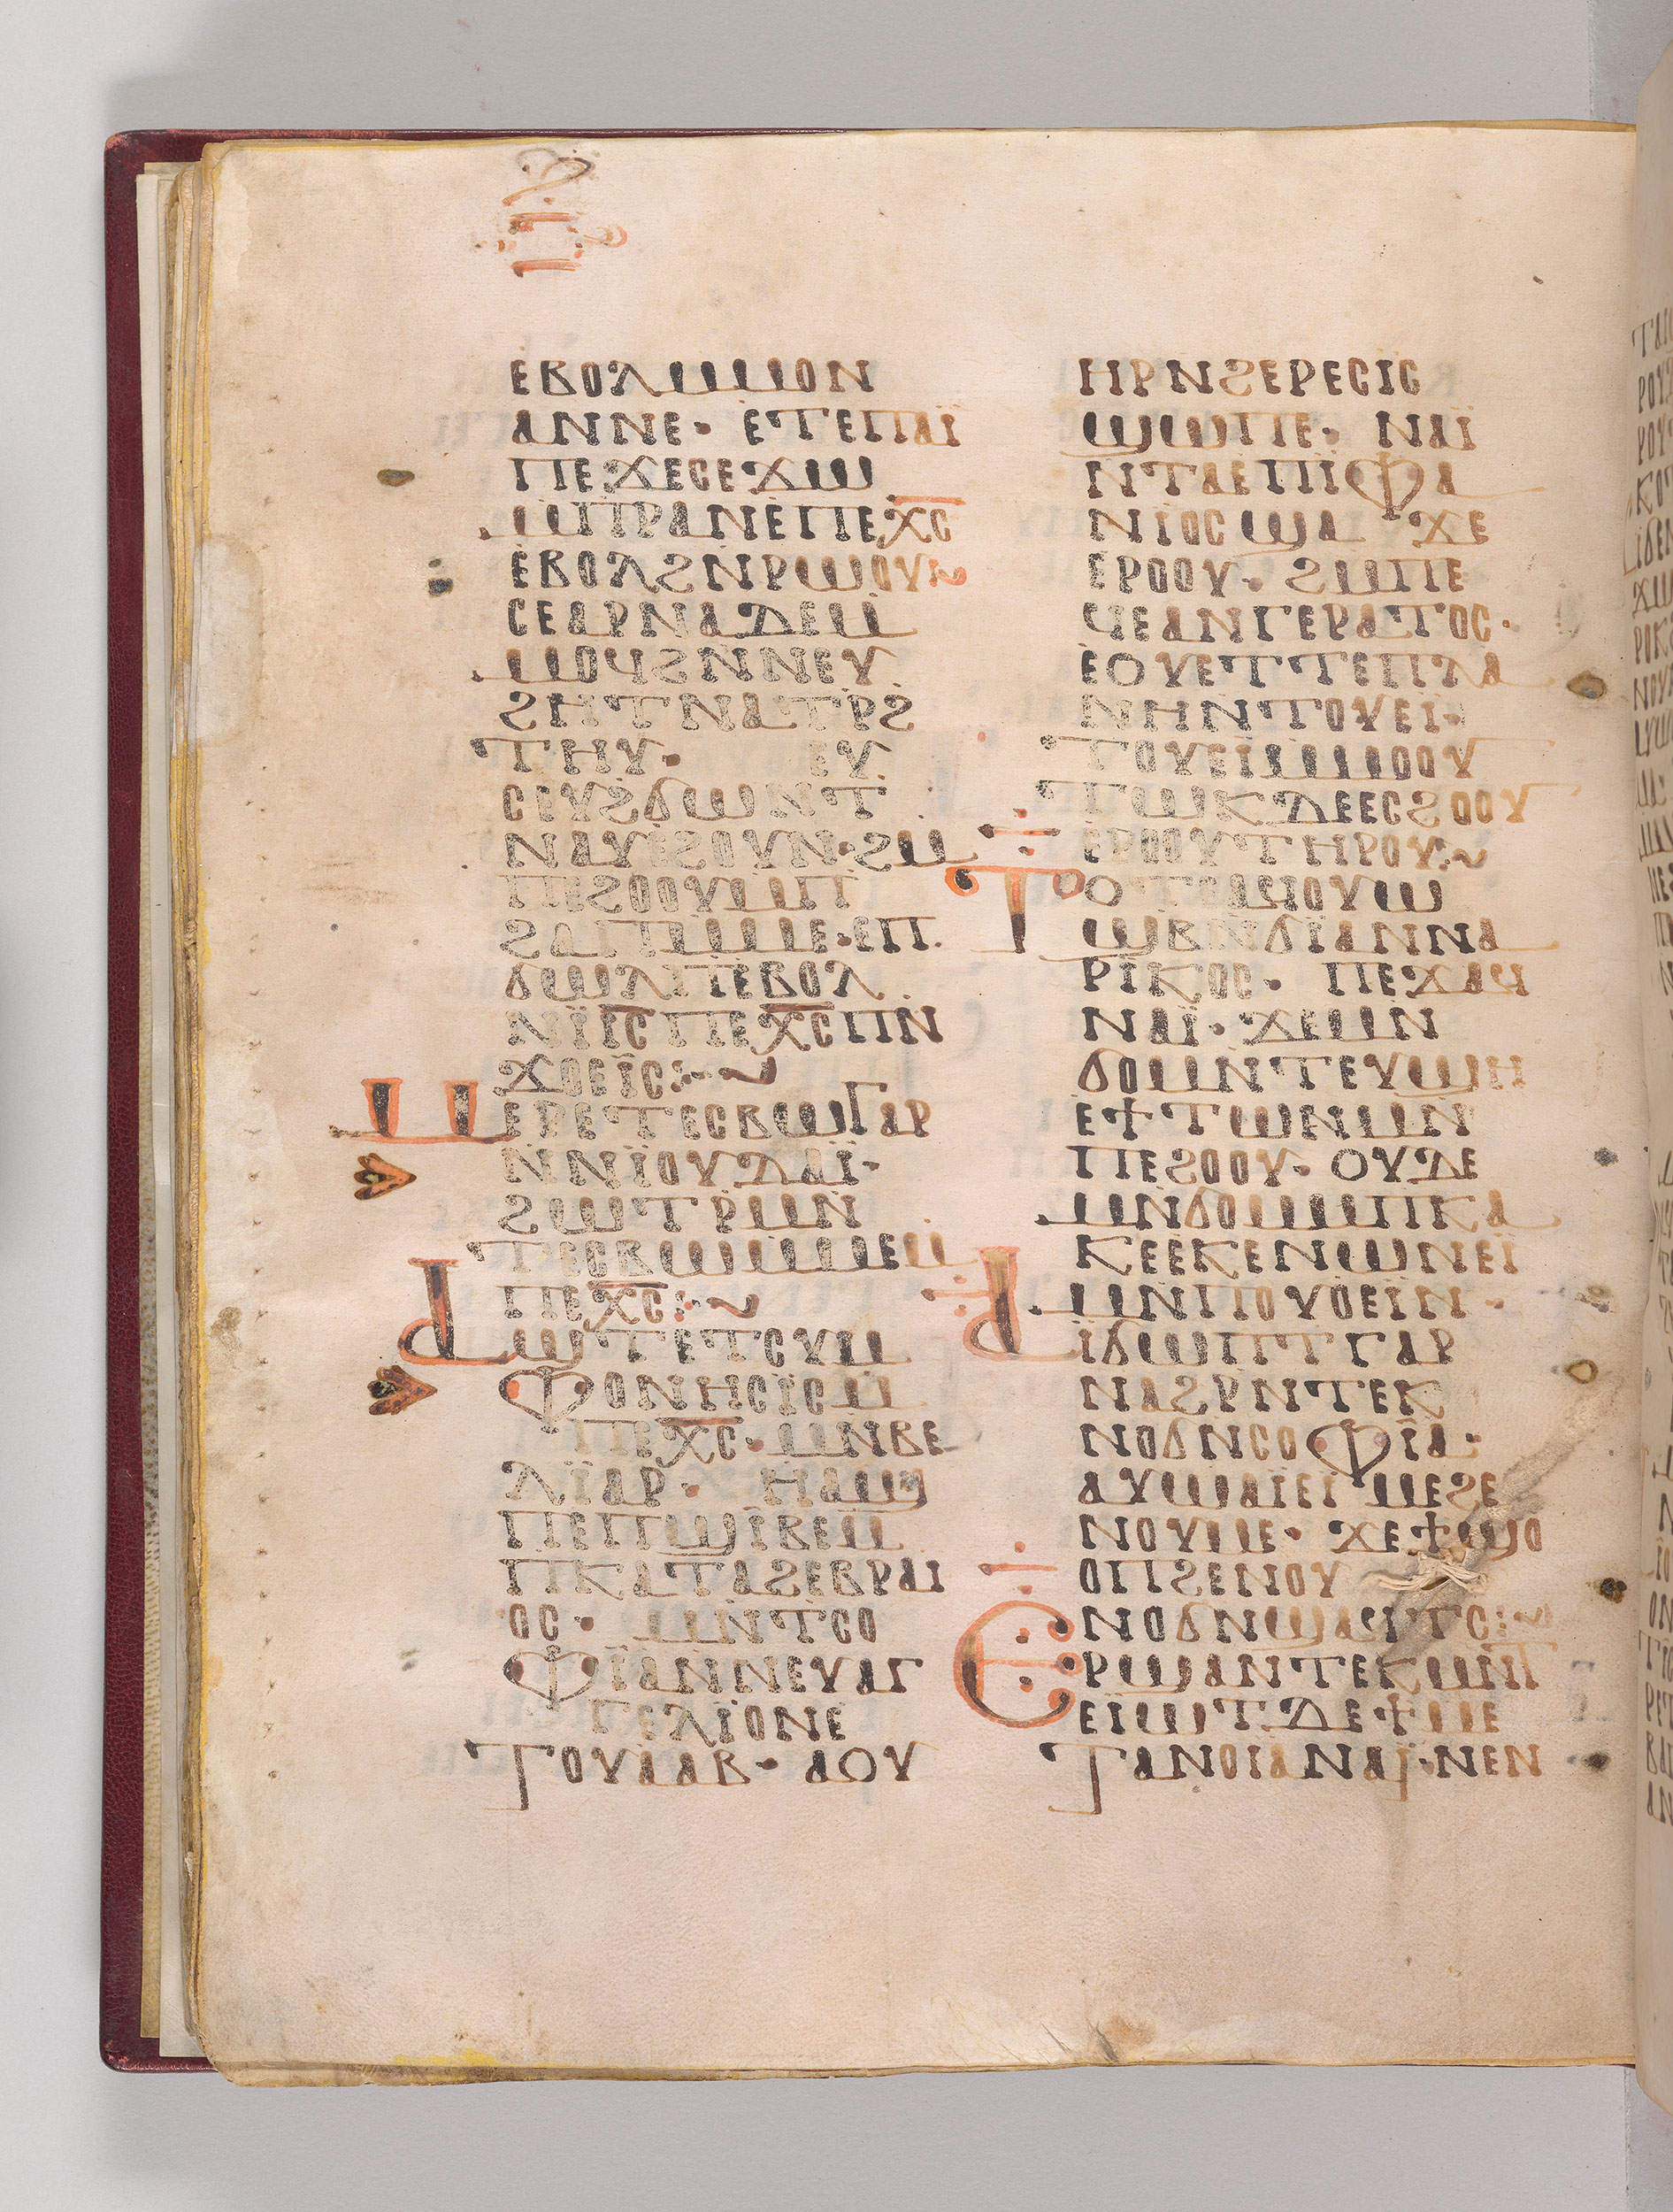 ⲉⲃⲟⲗⲙⲙⲟⲛ
ⲁⲛⲛⲉ· ⲉⲧⲉⲡⲁⲓ̈
ⲡⲉϫⲉⲥⲉϫⲱ
ⲙⲡⲣⲁⲛⲉⲡⲉⲭ̅ⲥ̅
ⲉⲃⲟⲗϩⲛⲣⲱⲟⲩ
ⲥⲉⲁⲣⲛⲁⲇⲉⲙ
ⲙⲟϥϩⲛⲛⲉⲩ
ϩⲏⲧⲛⲁⲧⲣϩ
ⲧⲏⲩ· ⲉⲩ
ⲥⲉⲩϩϭⲱⲛⲧ
ⲛⲁⲩⲉϩⲟⲩⲛ·ϩⲙ
ⲡⲉϩⲟⲟⲩⲙⲡ
ϩⲁⲡⲙⲙⲉ·ⲉⲡ
ϭⲱⲗⲡⲉⲃⲟⲗ
ⲛⲓ̈ⲓ̅ⲥ̅ⲡⲉⲭ̅ⲥ̅ⲡⲛ
ϫⲟⲉⲓ̈ⲥ:~
ⲙⲉⲣⲉⲧⲉⲥⲃⲱⲅⲁⲣ
ⲛⲛⲓ̈ⲟⲩⲇⲁⲓ̈·
ϩⲱⲧⲣⲙⲛ
ⲧⲉⲥⲃⲱⲙⲙⲉⲙ
ⲡⲉⲭ̅ⲥ̅:~
ⲣⲱⲧⲉⲧⲥⲩⲙ
ⲫⲟⲛⲏⲥⲓ̈ⲥⲙ
ⲡⲉⲭ̅ⲥ̅·ⲙⲛⲃⲉ
ⲗⲓ̈ⲁⲣ· ⲏⲁϣ
ⲡⲉⲡϣⲓⲃⲉⲙ
ⲡⲕⲁⲧⲁϩⲉⲃⲣⲁⲓ
ⲟⲥ· ⲙⲛⲧⲥⲟ
ⲫⲓ̈ⲁⲛⲛⲉⲩⲁⲅ
ⲅⲉⲗⲓ̈ⲟⲛⲉ
ⲧⲟⲩⲁⲁⲃ· ⲁⲟⲩ
ⲏⲣⲛϩⲉⲣⲉⲥⲓ̈ⲥ
ϣⲱⲡⲉ· ⲛⲁⲓ̈
ⲛⲧⲁⲉⲡⲓⲫⲁ
ⲛⲓ̈ⲟⲥϣⲁ ϫⲉ
ⲉⲣⲟⲟⲩ· ϩⲙⲡⲉ
ϥⲉⲁⲛⲅⲉⲣⲁⲧⲟⲥ·
ⲉⲟⲩⲉⲧⲧⲉⲡⲗⲁ
ⲛⲏⲛⲧⲟⲩⲉⲓ̈·
ⲧⲟⲩⲉⲓⲙⲙⲟⲟⲩ
ⲧⲱⲕⲇⲉⲉⲥϩⲟⲟⲩ
ⲉⲣⲟⲟⲩⲧⲏⲣⲟⲩ:~
ⲧⲟⲧⲁϥⲓⲟⲩⲱ
ϣⲃⲛϭⲓⲁⲛⲛⲁ
ⲣⲓⲕⲟⲥ· ⲡⲉϫⲁϥ
ⲛⲁⲓ̈· ϫⲉⲙⲛ
ϭⲟⲙⲛⲧⲉⲩϣⲏ
ⲉϯⲧⲱⲛⲙⲛ
ⲡⲉϩⲟⲟⲩ· ⲟⲩⲇⲉ
ⲙⲛϭⲟⲙⲙⲡⲕⲁ
ⲕⲉⲉⲕⲉⲛⲱⲛⲉⲓ̈
ⲙⲛⲡⲟⲩⲟⲉⲓⲛ·
ⲣⲓ̈ϭⲱⲡⲧⲅⲁⲣ
ⲛⲁϩⲣⲛⲧⲉⲕ
ⲛⲟϭⲛⲥⲟⲫⲓ̈ⲁ·
ⲁⲩϣⲁⲓ̈ⲉⲓ ⲙⲉϩⲉ
ⲛⲟⲩⲙⲉ· ϫⲉϯϣⲟ
ⲟⲡϩⲉⲛⲟⲩ
ⲛⲟϭⲛϣⲁϥⲧⲥ:~
ⲉⲣϣⲁⲛⲧⲉⲕⲙⲛⲧ
ⲉⲓⲱⲧⲇⲉϯⲙⲉ
ⲧⲁⲛⲟⲓⲁⲛⲁⲓ̈·ⲛⲉⲛ